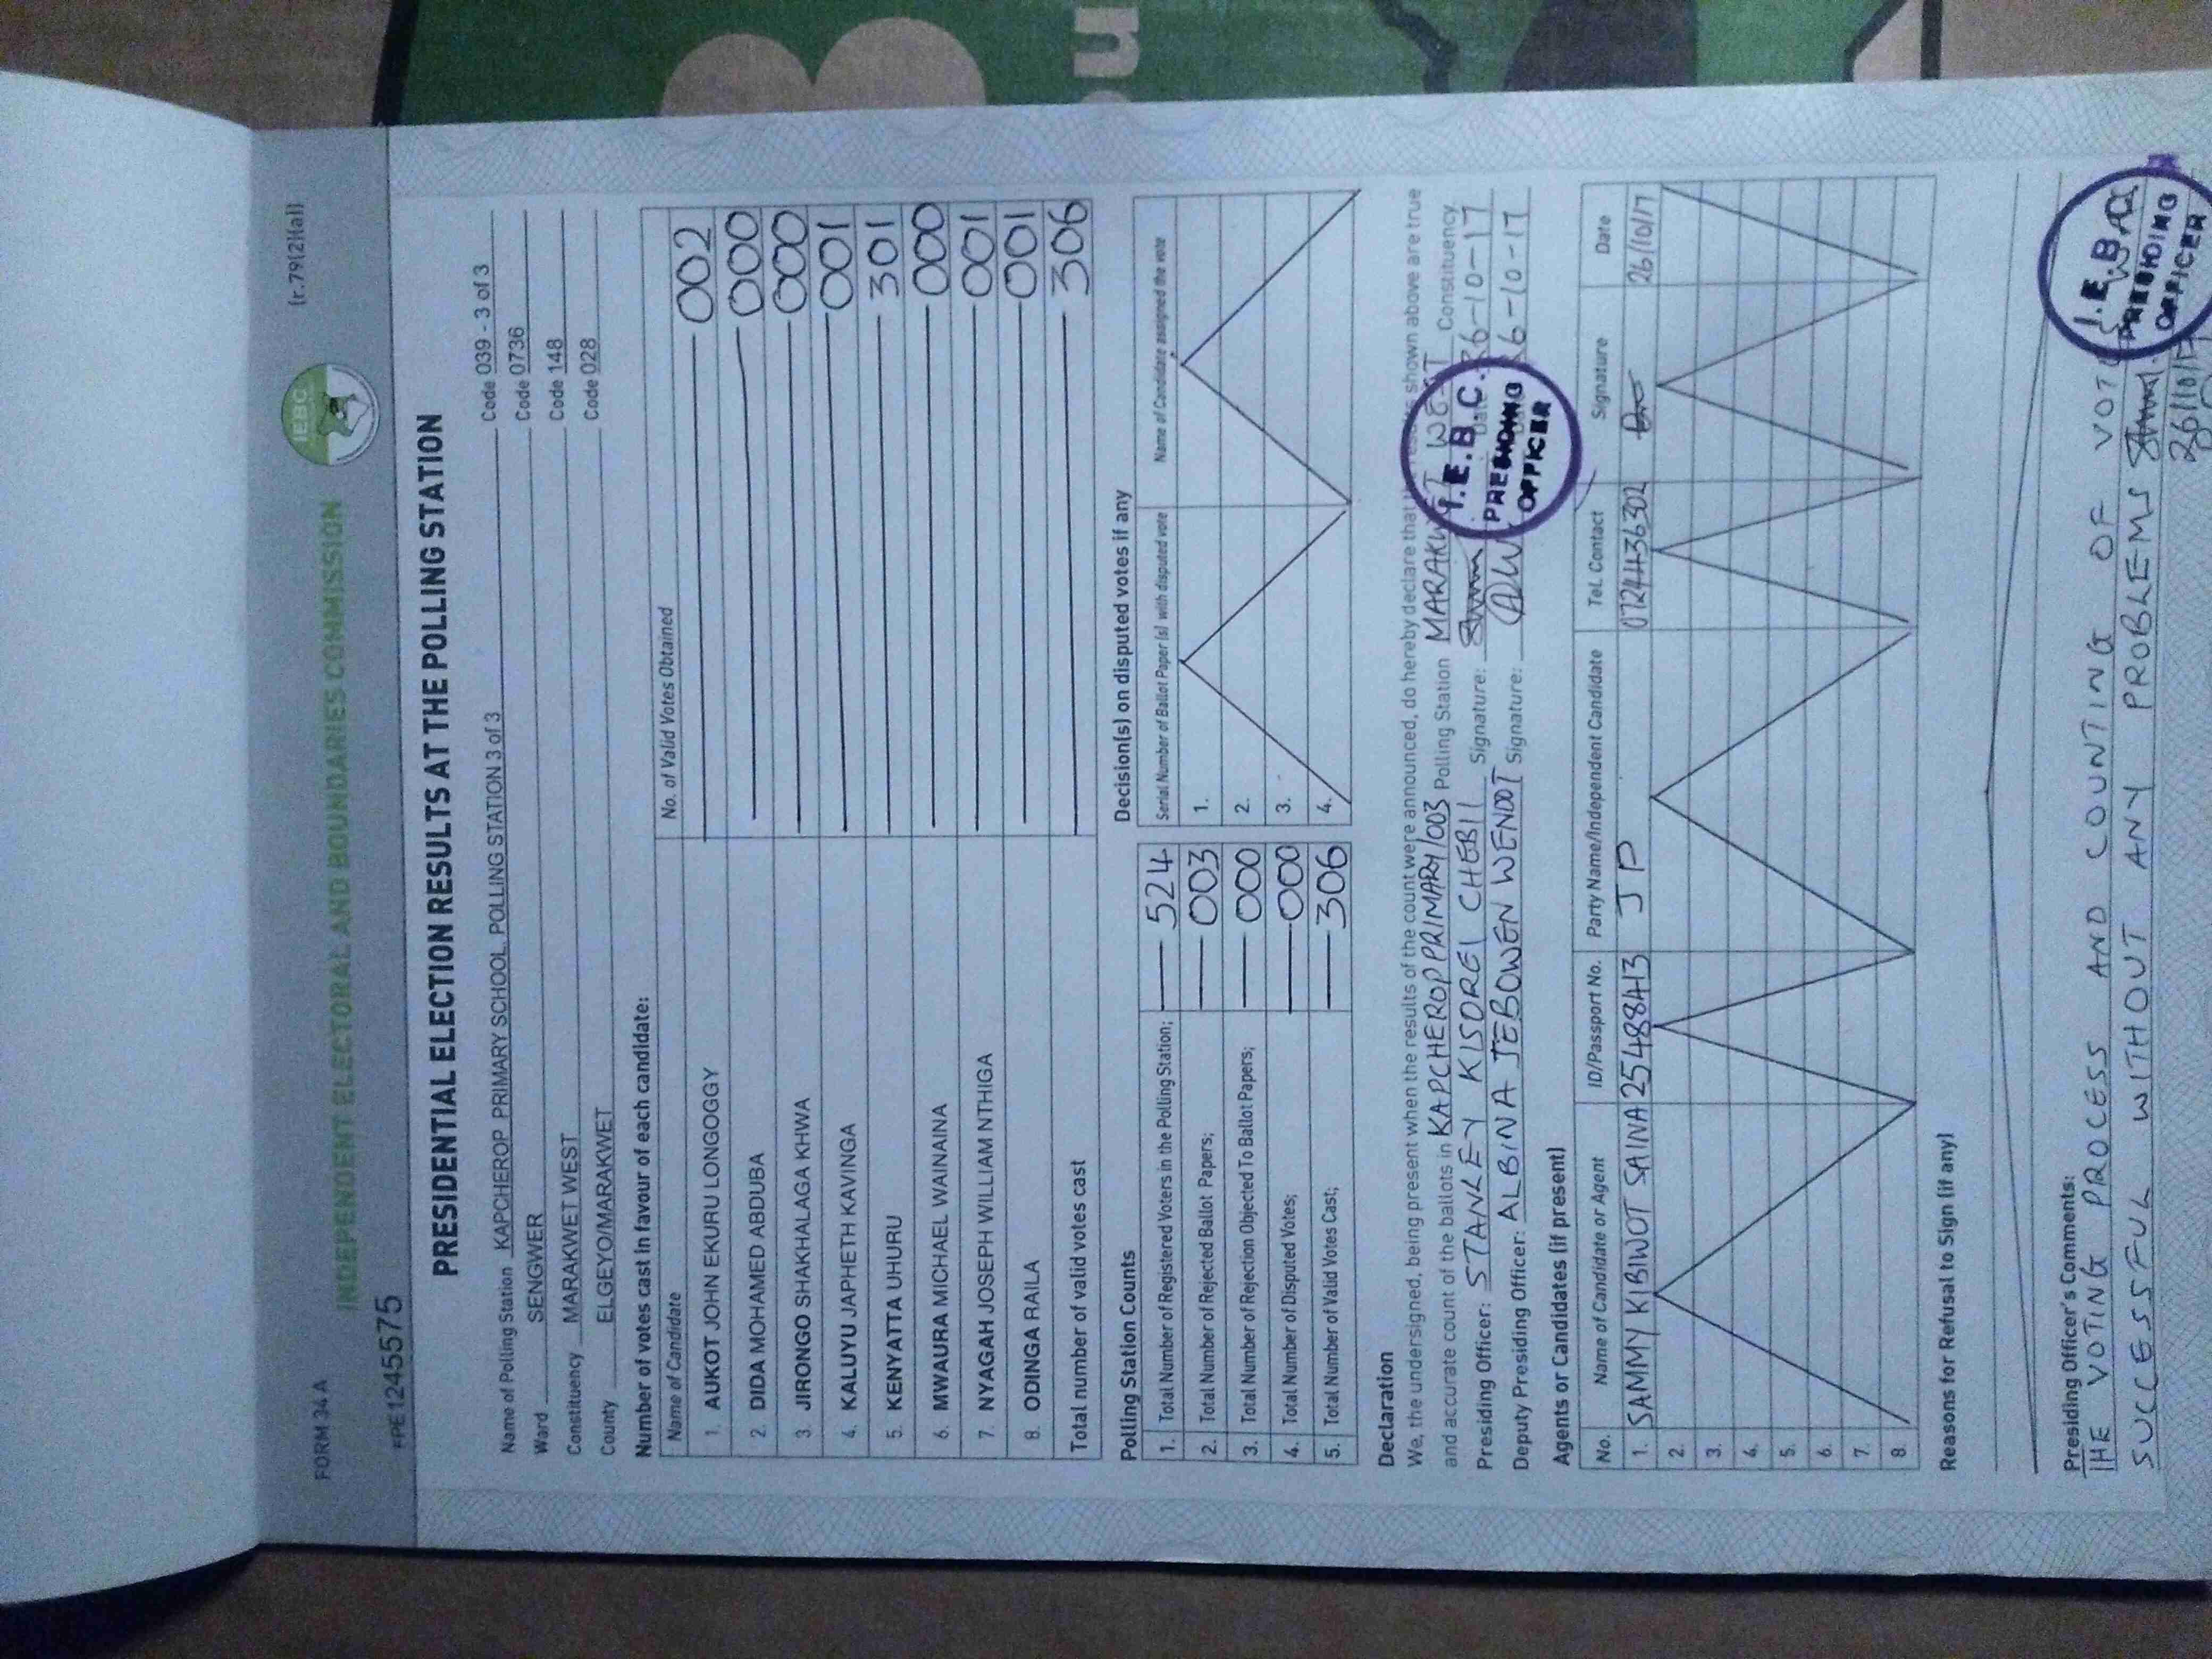 FORM 34 A
(r.79(2)(a))
IEBC
INDEPENDENT ELECTORAL AND BOUNDARIES COMMISSION
PE1245575
PRESIDENTIAL ELECTION RESULTS AT THE POLLING STATION
Name of Polling Station KAPCHEROP PRIMARY SCHOOL POLLING STATION 3 of 3 Code 039 - 3 of 3
Ward SENGWER Code 0736
Constituency MARAKWET WEST Code 148
County ELGEYO/MARAKWET Code 028
Number of votes cast in favour of each candidate:
Name of Candidate No. of Valid Votes Obtained
1. AUKOT JOHN EKURU LONGOGGY 002
2. DIDA MOHAMED ABDUBA 000
3. JIRONGO SHAKHALAGA KHWA 000
4. KALUYU JAPHETH KAVINGA 001
5. KENYATTA UHURU 301
6. MWAURA MICHAEL WAINAINA 000
7. NYAGAH JOSEPH WILLIAM NTHIGA 001
8. ODINGA RAILA 001
Total number of valid votes cast 306
Polling Station Counts
1. Total Number of Registered Voters in the Polling Station; 524
2. Total Number of Rejected Ballot Papers; 003
3. Total Number of Rejection Objected To Ballot Papers; 000
4. Total Number of Disputed Votes; 000
5. Total Number of Valid Votes Cast; 306
Decision(s) on disputed votes if any
Serial Number of Ballot Paper (s) with disputed vote Name of Candidate assigned the vote
1.
2.
3.
4.
Declaration
We, the undersigned, being present when the results of the count were announced, do hereby declare that the results shown above are true
and accurate count of the ballots in KAPCHEROP PRIMARY/003 Polling Station MARAKWET WEST Constituency.
Presiding Officer: STANLEY KISOREI CHEBII Signature: Date 26-10-17
Deputy Presiding Officer: ALBINA JEBOWEN WENDOT Signature: 26-10-17
I.E.B.C.
PRESIDING
OFFICER
Agents or Candidates (if present)
No. Name of Candidate or Agent ID/Passport No. Party Name/Independent Candidate Tel. Contact Signature Date
1. SAMMY KIBIWOT SAINA 25488413 JP 0724436302 26/10/17
2.
3.
4.
5.
6.
7.
8.
Reasons for Refusal to Sign (if any)
Presiding Officer's Comments:
THE VOTING PROCESS AND COUNTING OF VOTES WAS
SUCCESSFUL WITHOUT ANY PROBLEMS
26/10/17
I.E.B.C.
PRESIDING
OFFICER